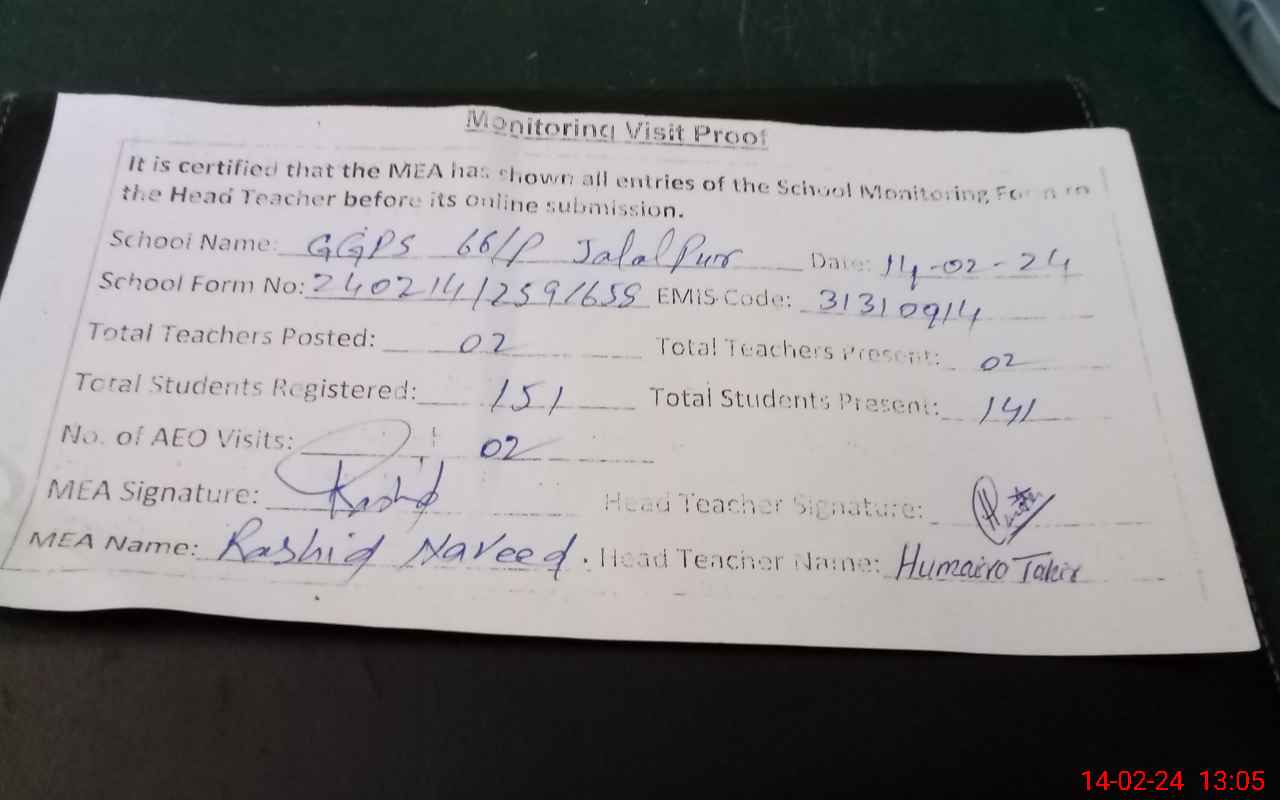 Monitoring Visit Proof
It is certified that the MEA has shown all entries of the School Monitoring Form to
the Head Teacher before its online submission.
School Name: GGPS 66/P Jalal Pur Date: 14-02-24
School Form No: 24021412591659 EMIS Code: 31310914
Total Teachers Posted: 02 Total Teachers Present: 02
Total Students Registered: 151 Total Students Present: 141
No. of AEO Visits: 02
MEA Signature: Rashid Head Teacher Signature:
MEA Name: Rashid Naveed. Head Teacher Name: Humaira Tahir
14-02-24 13:05